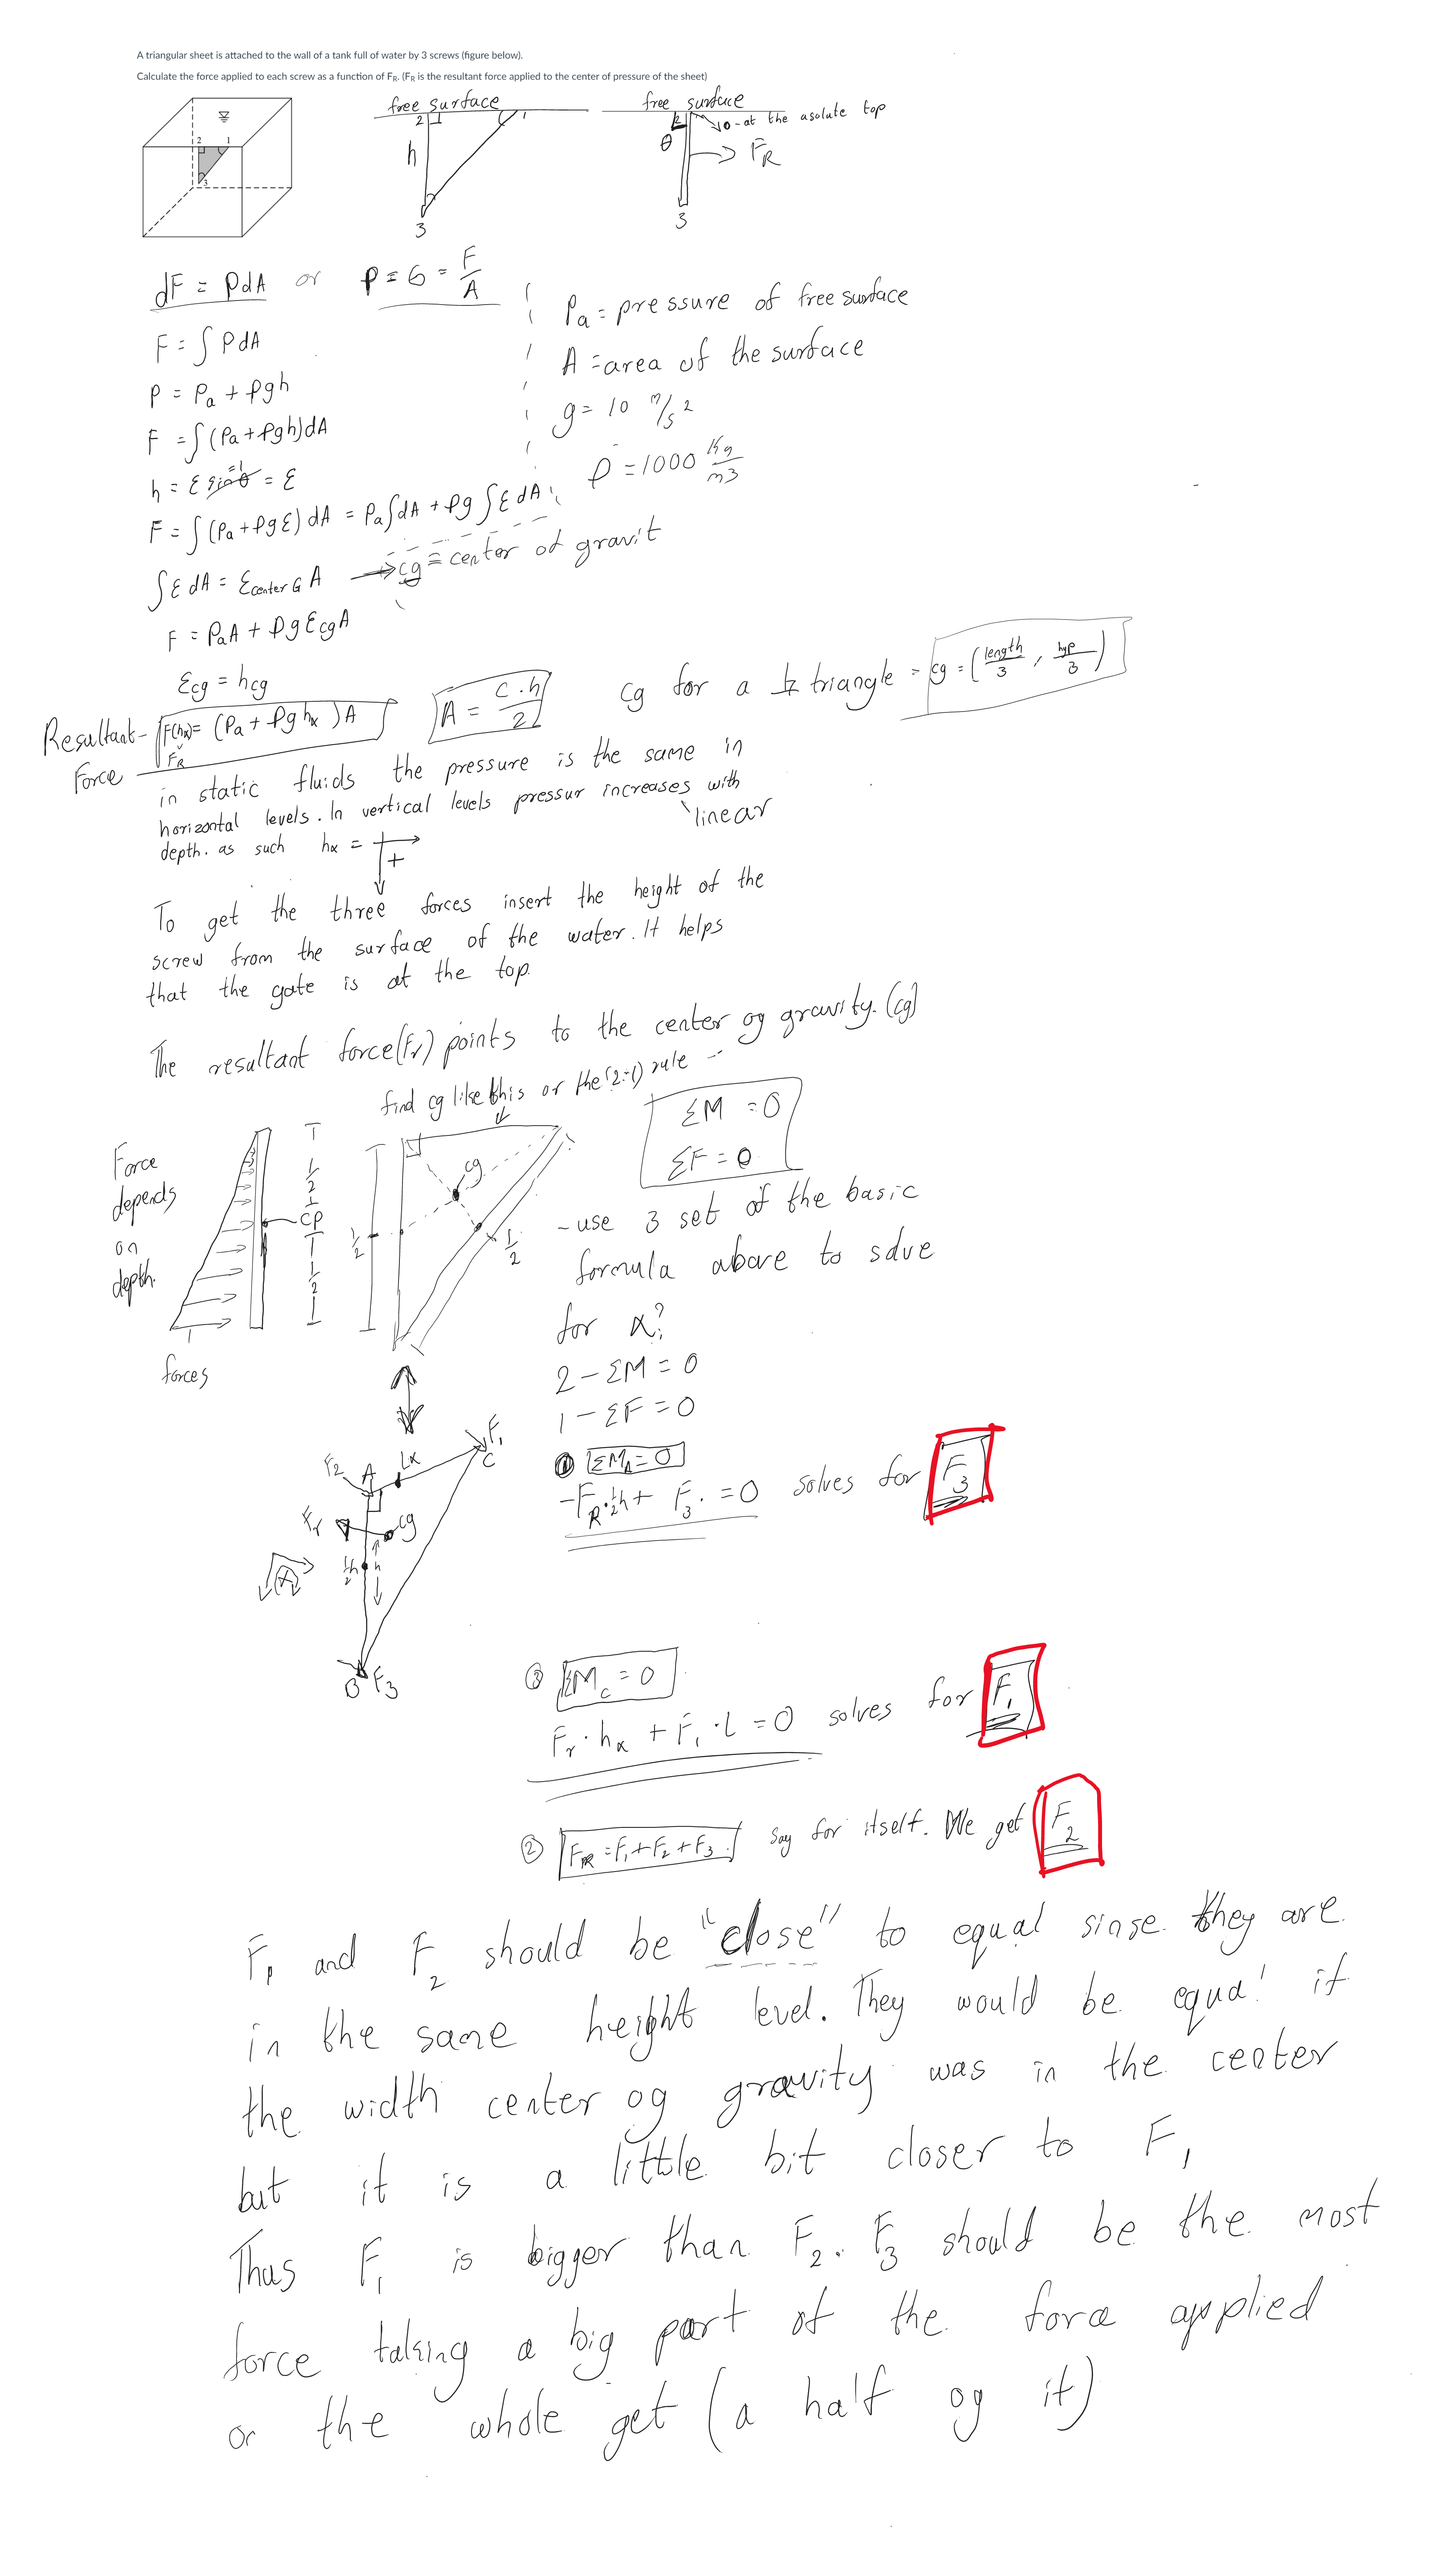 A triangular sheet is attached to the wall of a tank full of water by 3 screws (figure below).
Calculate the force applied to each screw as a function of FR. (FR is the resultant force applied to the center of pressure of the sheet)
2 1
3
free surface
2 1
h
3
free surface
2
0 - at the asolute top
θ
FR
3
dF = PdA or P = G = F/A
F = ∫ PdA
P = Pa + ρgh
F = ∫(Pa + ρgh)dA
h = ε sinθ = ε
=1
F = ∫(Pa + ρgε)dA = Pa∫dA + ρg∫εdA
∫εdA = εcenter G A → cg = center of gravit
F = PaA + ρgεcgA
εcg = hcg
Pa = pressure of free surface
A = area of the surface
g = 10 m/s2
ρ = 1000 Kg/m3
Resultant - F(hx) = (Pa + ρg hx)A
Force
FR
A = c·h/2
cg for a triangle = cg = (length/3, hyp/3)
in static fluids the pressure is the same in
horizontal levels. In vertical levels pressur increases with
linear
depth. as such hx =
+
To get the three forces insert the height of the
screw from the surface of the water. It helps
that the gate is at the top.
The resultant force(Fr) points to the center og gravity. (cg)
find cg like this or the (2:1) rule
Force
depends
on
depth.
forces
1/2
CP
1/2
1/2
cg
1/2
ΣM = 0
ΣF = 0
- use 3 set of the basic
formula above to solve
for x?
2 - ΣM = 0
1 - ΣF = 0
① ΣMA = 0
-FR·1/2h + F3· = 0 solves for F3
F2 A Lx F1
C
Fr cg
1/2h h
x
B F3
③ ΣMc = 0
Fr·hx + F1·L = 0 solves for F1
② FR = F1 + F2 + F3 say for itself. We get F2
F1 and F2 should be "close" to equal sinse they are
in the same height level. They would be equal if
the width center og gravity was in the center
but it is a little bit closer to F1
Thus F1 is bigger than F2. F3 should be the most
force taking a big part of the force applied
or the whole get (a half og it)